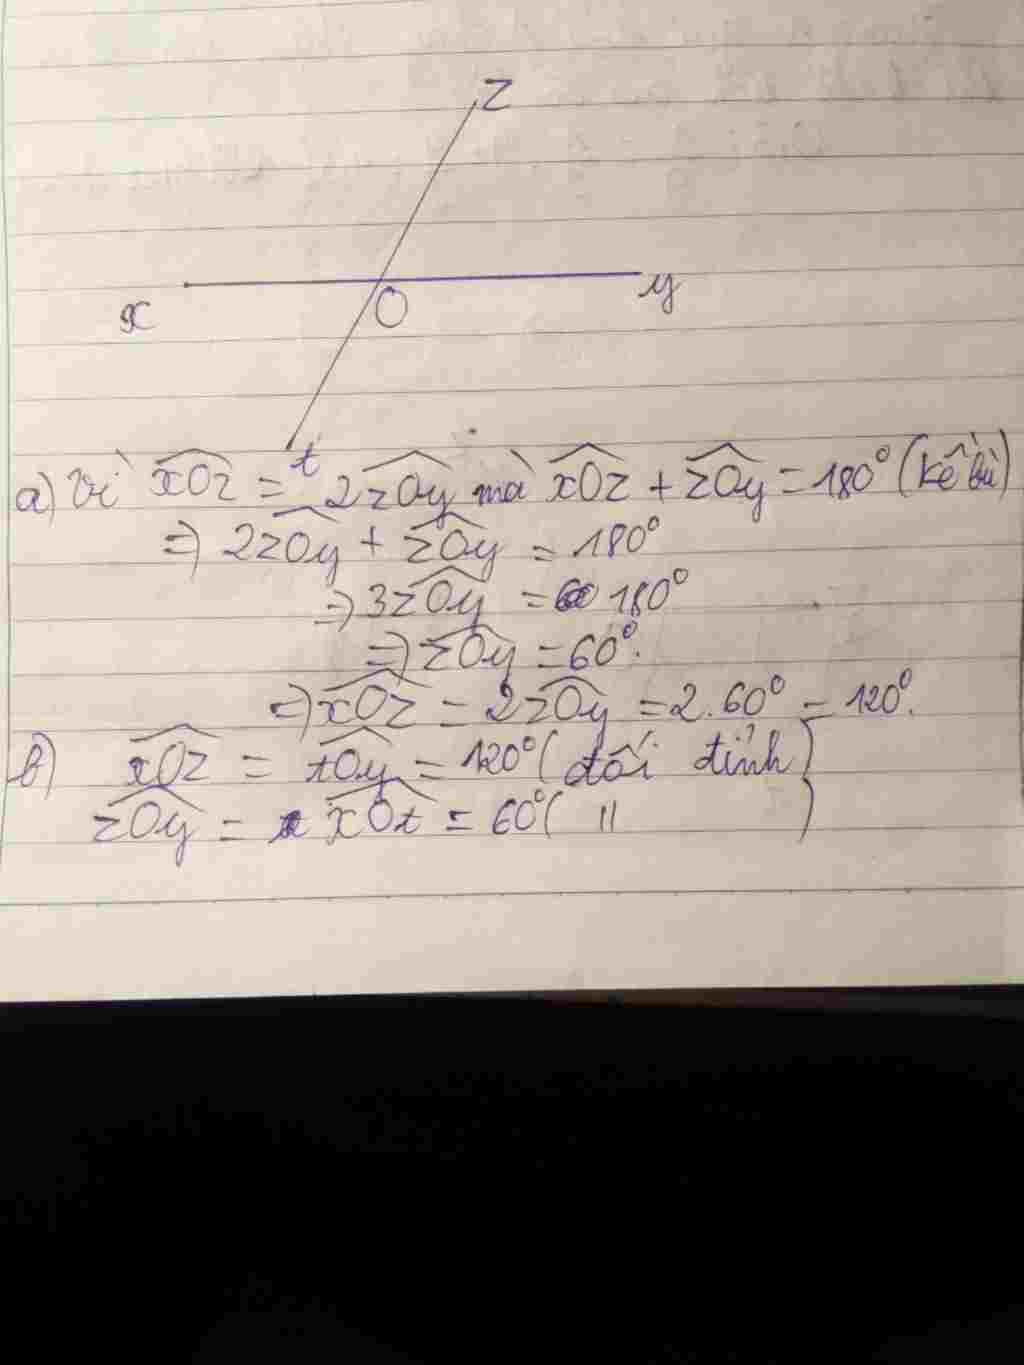 z
x O y
t
a) Vì xOz = 2zOy mà xOz + zOy = 180° (kề bù)
=> 2zOy + zOy = 180°
=> 3zOy = 180°
=> zOy = 60°.
=> xOz = 2zOy = 2.60° = 120°.
b) xOz = tOy = 120° (đối đỉnh)
zOy = xOt = 60° ( " )